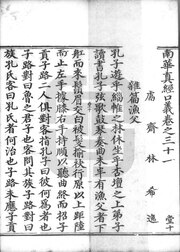 南華真經口義卷之三十一
鬳齋林希逸
雜篇漁父
孔子遊乎緇帷之林休坐乎杏壇之上弟子
讀書孔子弦歌鼓琴奏曲未半有漁父者下
船而來鬚眉交白被髮揄袂行原以上距陸
而止左手據膝右手持頤以聽曲終而招子
貢子路二人俱對客指孔子曰彼何為者也
子路對曰魯之君子也客問其族子路對曰
族孔氏客曰孔氏者何治也子路未應子貢